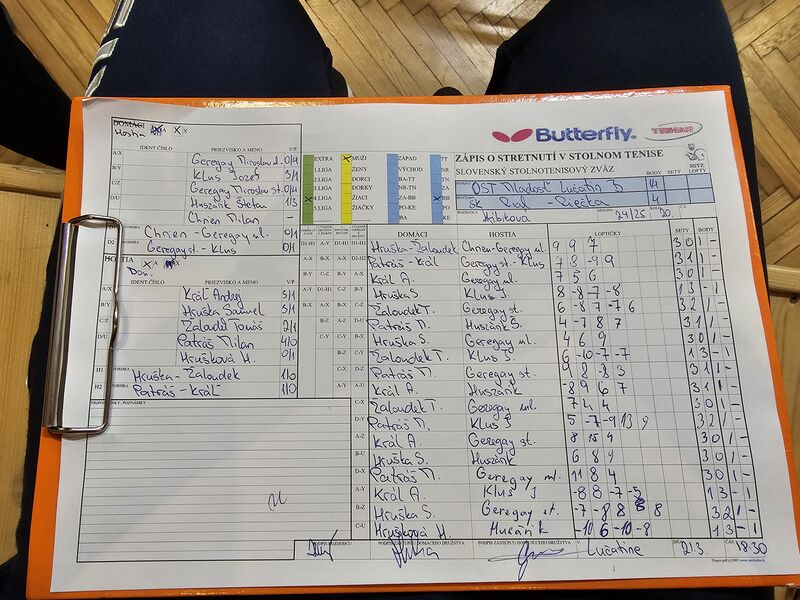 DOMÁCI
Hostia
IDENT ČÍSLO PRIEZVISKO A MENO V/P
A/X Geregay Miroslav ml. 0/4
B/Y Klus Jozef 3/1
C/Z Geregay Miroslav st. 0/4
D/U Huszárik Štefan 1/3
Chrien Milan -
Chrien - Geregay ml. 0/1
D2 Geregay st. - Klus 0/1
HOSTIA
Dom.
IDENT ČÍSLO PRIEZVISKO A MENO V/P
A/X Kráľ Andrej 3/1
B/Y Hruška Samuel 3/1
C/Z Žaloudek Tomáš 2/1
D/U Patráš Milan 4/0
Hrušková H. 0/1
H1 Hruška - Žaloudek 1/0
H2 Patráš - Kráľ 1/0
PRIPOMIENKY, POZNÁMKY
EXTRA MUŽI ZÁPAD TT
1.LIGA ŽENY VÝCHOD NR
2.LIGA DORCI BA-TT TN
3.LIGA DORKY NR-TN ZA
4.LIGA ŽIACI ZA-BB BB
5.LIGA ŽIAČKY PO-KE PO
BA KE
Butterfly
TENAR
SSTZ
ZÁPIS O STRETNUTÍ V STOLNOM TENISE
SLOVENSKÝ STOLNOTENISOVÝ ZVÄZ
BODY SETY LOPTY
OŠT Mladosť Lučatín B 14
ŠK Riečka 4
24/25 20.
DOMÁCI HOSTIA LOPTIČKY SETY BODY
Hruška-Žaloudek Chrien-Geregay ml. 9 9 7 3 0 1 -
Patráš - Kráľ Geregay st. - Klus 3 1 1 -
Kráľ A. Geregay ml. 7 5 6 3 0 1 -
Hruška S. Klus J. 8 -8 -7 -8 1 3 - 1
Žaloudek T. Geregay st. 6 -8 7 -7 6 3 2 1 -
Patráš M. Huszárik Š. 4 -7 8 7 3 1 1 -
Hruška S. Geregay ml. 4 6 9 3 0 1 -
Žaloudek T. Klus J. 6 -10 -7 -7 1 3 - 1
Patráš M. Geregay st. 9 8 -8 3 3 1 1 -
Kráľ A. Huszárik -8 9 6 7 3 1 1 -
Žaloudek T. Geregay ml. 7 4 4 3 0 1 -
Patráš M. Klus J 5 -7 -9 13 9 3 2 1 -
Kráľ A. Geregay st. 8 15 4 3 0 1 -
Hruška S. Huszárik 6 8 9 3 0 1 -
Patráš M. Geregay ml. 11 8 4 3 0 1 -
Kráľ A. Klus J -8 8 -7 -5 1 3 - 1
Hruška S. Geregay st. -7 -8 8 8 8 3 2 1 -
Hrušková H. Huszárik -10 6 -10 -8 1 3 - 1
PODPIS ROZHODCU PODPIS ZÁSTUPCU DOMÁCEHO DRUŽSTVA PODPIS ZÁSTUPCU HOSŤUJÚCEHO DRUŽSTVA V Lučatíne DŇA 2.3. ČAS 18:30